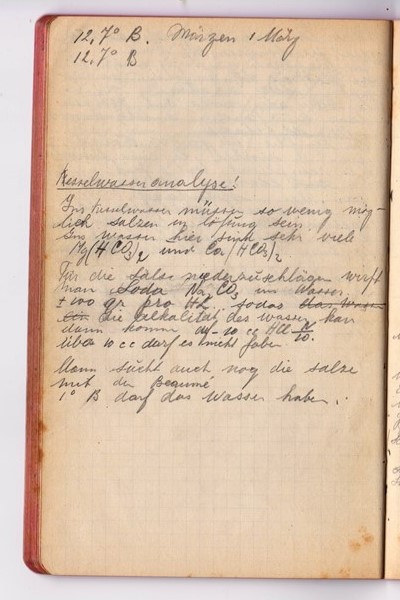 12,7° B. Märzen 1 März
12,7° B
Kesselwasseranalyse!
Im Kesselwasser müssen so wenig mög-
lich salzen in lösung sein.
Im wasser hier sind sehr viele
Mg(HCO3)2 und Ca(HCO3)2
Für die salze niederzuschlagen wirft
man Soda Na2CO3 im Wasser.
± 100 gr pro HL sodas das Wasser
die Alkalität des wasser kan
dann komm auf 10 cc HCl N/10.
über 10 cc darf es nicht gaben
Mann sücht auch nog die salze
mit den Beaumé
1° B darf das Wasser haben.